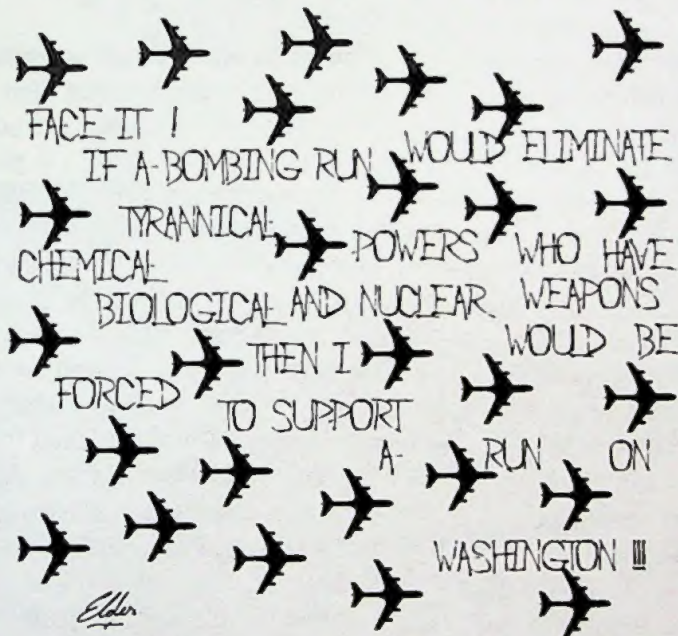 FACE IT !
IF A-BOMBING RUN WOULD ELIMINATE
TYRANNICAL POWERS WHO HAVE
CHEMICAL
BIOLOGICAL AND NUCLEAR WEAPONS
THEN I WOULD BE
FORCED TO SUPPORT
A- RUN ON
WASHINGTON !!!
Elder